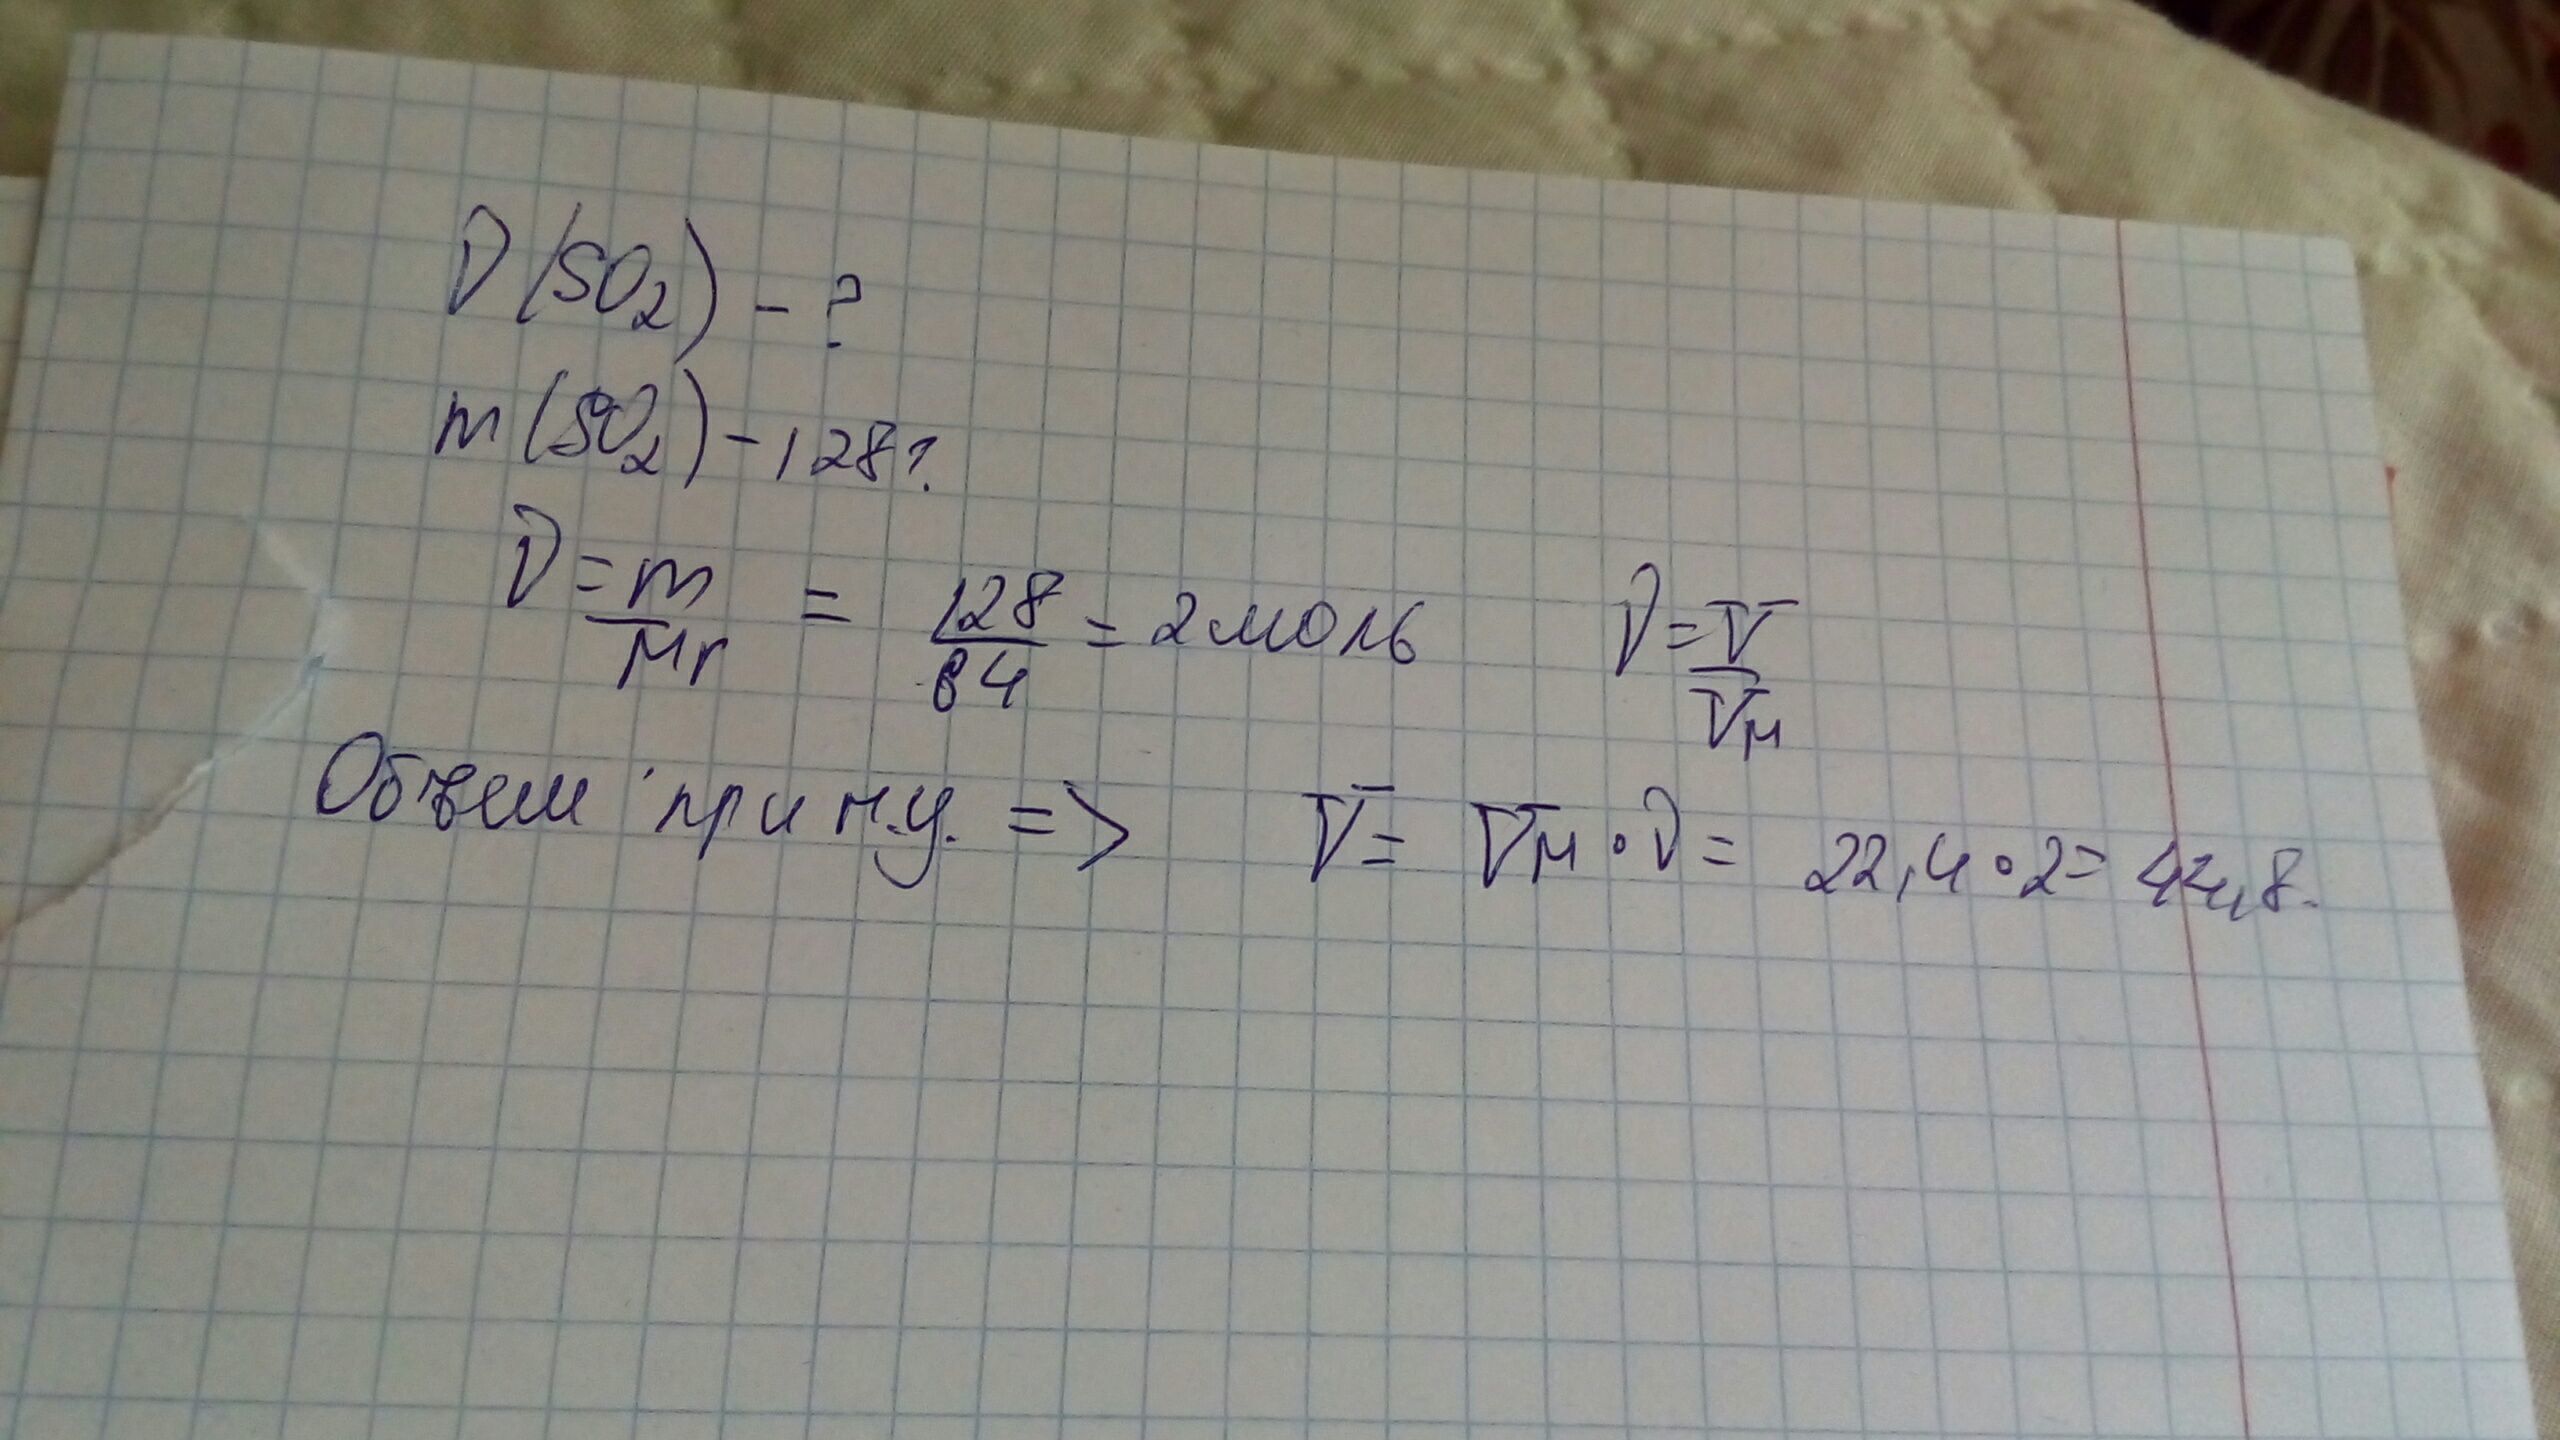 ν(SO₂) - ?
m(SO₂) - 128г.
ν = m/Mr = 128/64 = 2 моль ν = V/Vм
Объем при н.у. => V = Vм • ν = 22,4 • 2 = 44,8.